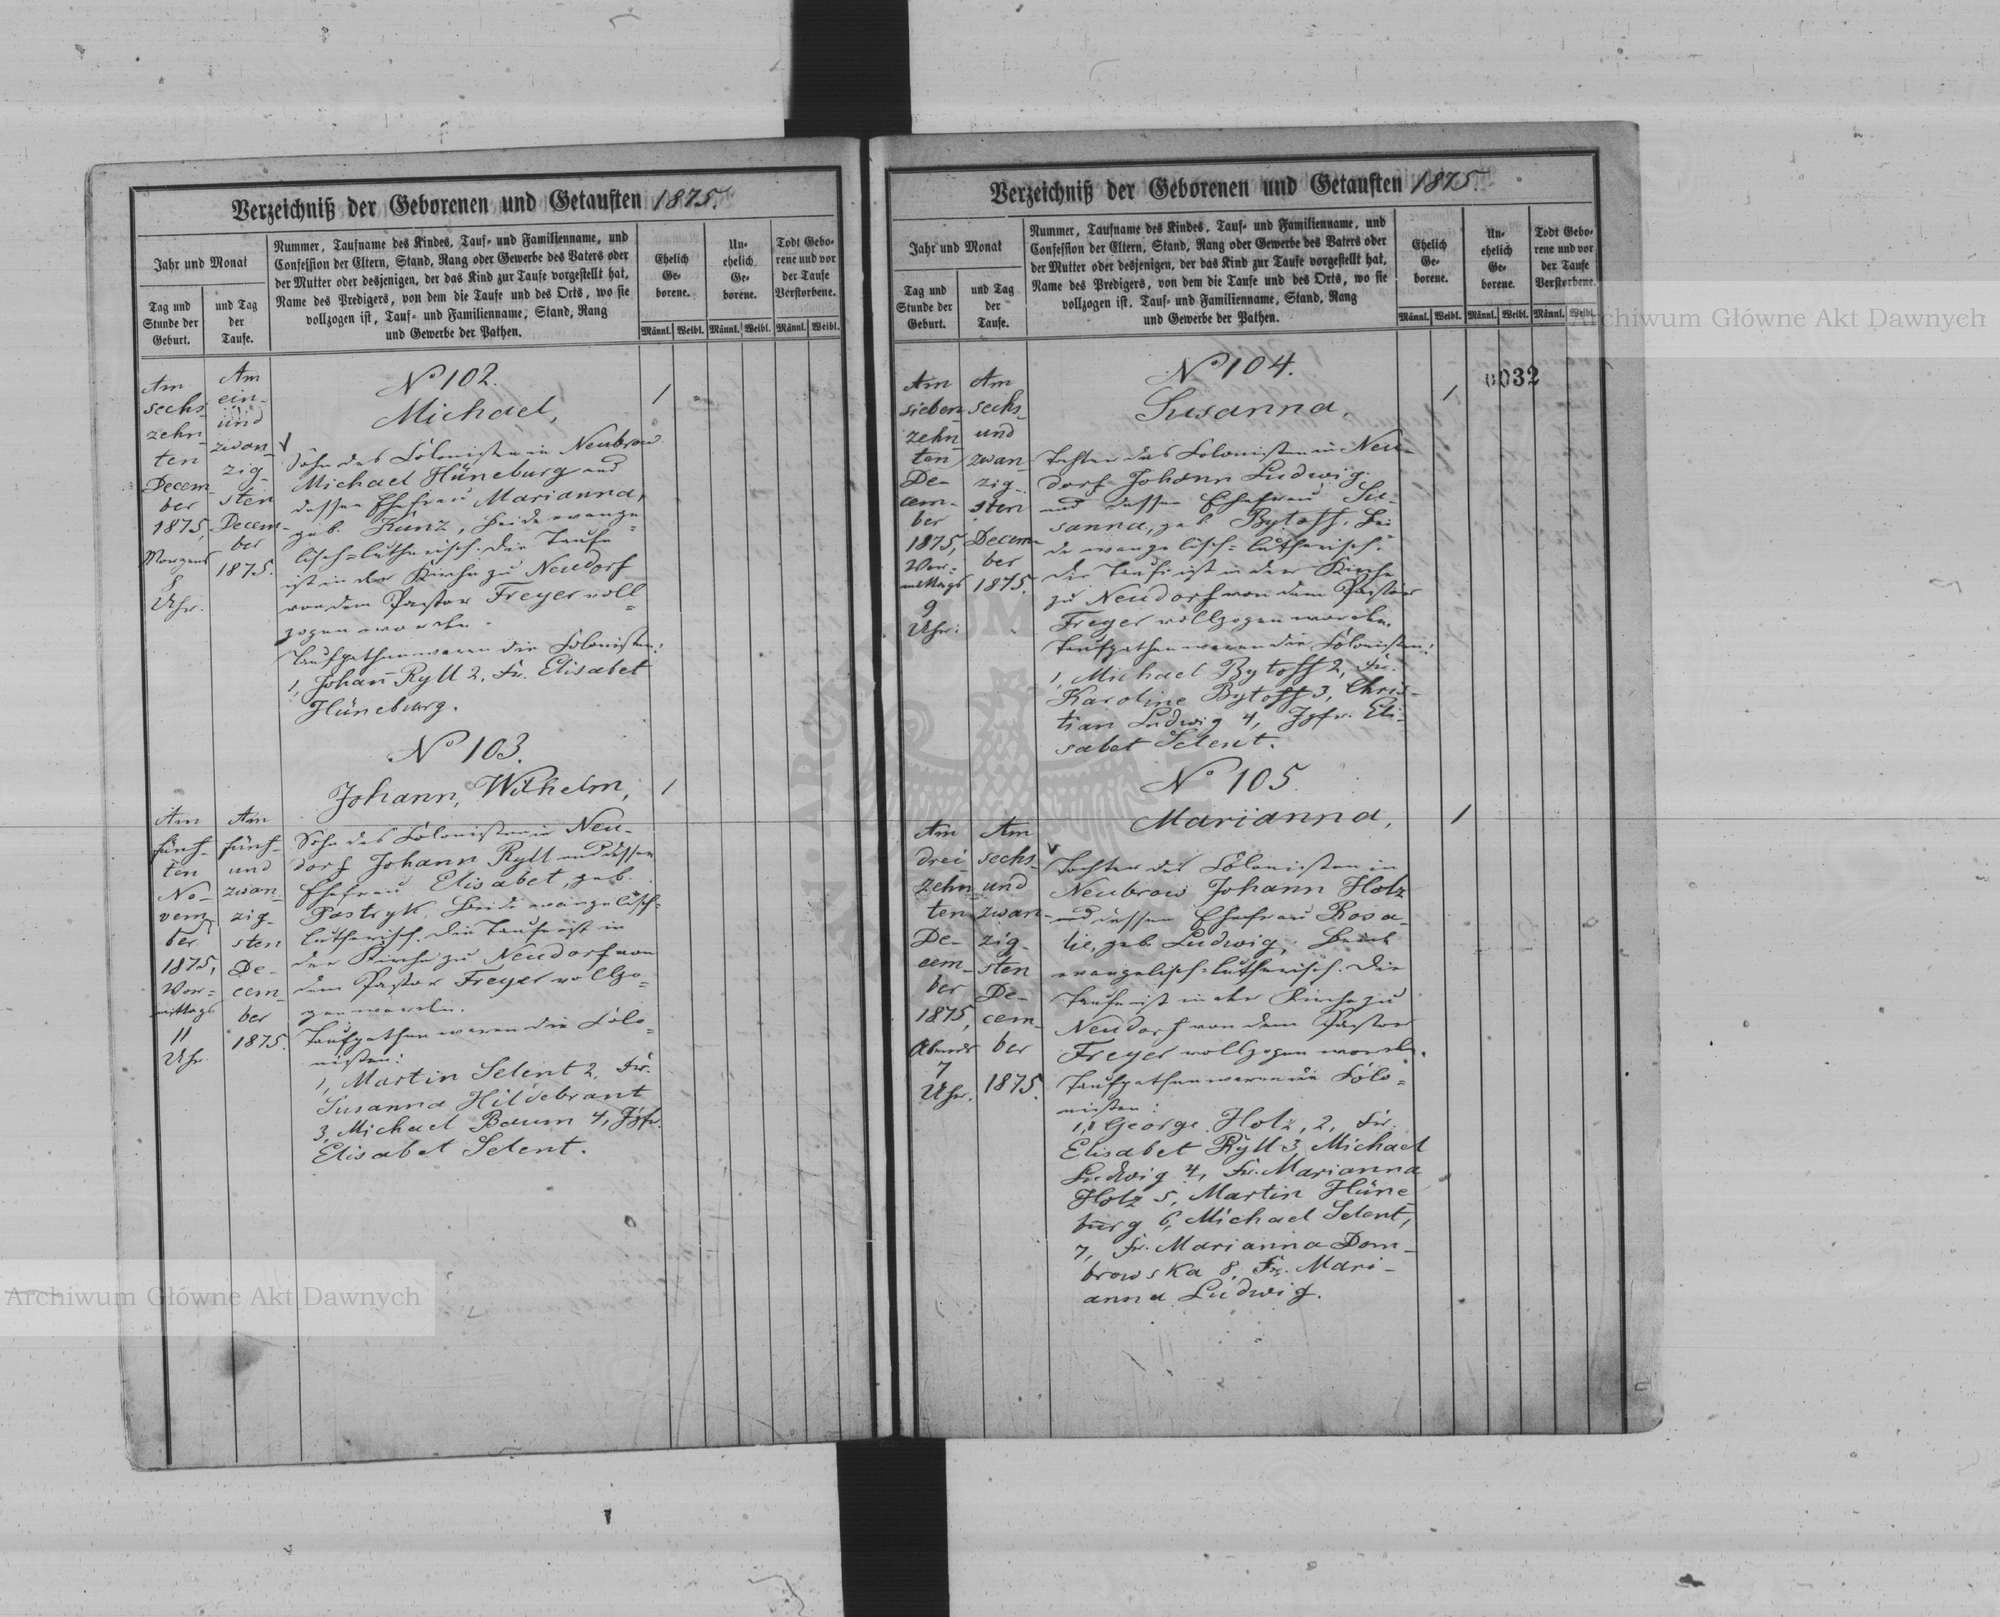 Verzeichniß der Geborenen und Getauften 1875.
Jahr und Monat
Tag und Stunde der Geburt.
und Tag der Taufe.
Nummer, Taufname des Kindes, Tauf- und Familienname, und
Confession der Eltern, Stand, Rang oder Gewerbe des Vaters oder
der Mutter oder desjenigen, der das Kind zur Taufe vorgestellt hat,
Name des Predigers, von dem die Taufe und des Orts, wo sie
vollzogen ist, Tauf- und Familienname, Stand, Rang
und Gewerbe der Pathen.
Ehelich Ge-
borene.
Un-
ehelich
Ge-
borene.
Todt Gebo-
rene und vor
der Taufe
Verstorbene.
Männl. Weibl. Männl. Weibl. Männl. Weibl.
Am
sechs-
zehn-
ten
Decem-
ber
1875,
Morgens
8
Uhr.
Am
ein-
und
zwan-
zig-
sten
Decem-
ber
1875.
No 102.
Michael,
1
Sohn des Colonisten in Neubrow
Michael Hüneburg und
dessen Ehefrau Marianna,
geb. Kunz, Beide evange-
lisch=lutherisch. Die Taufe
ist in der Kirche zu Neudorf
von dem Pastor Freyer voll=
zogen worden.
Taufpathen waren die Colonisten:
1, Johann Ryll 2. Fr. Elisabet
Hüneburg.
No 103.
Johann, Wilhelm,
1
Am
fünf-
ten
No-
vem-
ber
1875,
Vor-
mittags
11
Uhr.
Am
fünf-
und
zwan-
zig-
sten
De-
cem-
ber
1875.
Sohn des Colonisten in Neu-
dorf Johann Ryll und dessen
Ehefrau Elisabet, geb.
Pastryk, Beide evangelisch=
lutherisch. Die Taufe ist in
der Kirche zu Neudorf von
dem Pastor Freyer vollzo=
gen worden.
Taufpathen waren die Colo=
nisten:
1, Martin Selent 2, Fr.
Susanna Hildebrant
3, Michael Baum 4, Jgfr.
Elisabet Selent.
Verzeichniß der Geborenen und Getauften 1875.
Jahr und Monat
Tag und Stunde der Geburt.
und Tag der Taufe.
Nummer, Taufname des Kindes, Tauf- und Familienname, und
Confession der Eltern, Stand, Rang oder Gewerbe des Vaters oder
der Mutter oder desjenigen, der das Kind zur Taufe vorgestellt hat,
Name des Predigers, von dem die Taufe und des Orts, wo sie
vollzogen ist, Tauf- und Familienname, Stand, Rang
und Gewerbe der Pathen.
Ehelich
Ge-
borene.
Un-
ehelich
Ge-
borene.
Todt Gebo-
rene und vor
der Taufe
Verstorbene.
Männl. Weibl. Männl. Weibl. Männl. Weibl.
0032
Am
sieben-
zehn-
ten
De-
cem-
ber
1875,
Vor-
mittags
9
Uhr.
Am
sechs-
und
zwan-
zig-
sten
Decem-
ber
1875.
No 104.
Susanna,
1
Tochter des Colonisten in Neu-
dorf Johann Ludwig
und dessen Ehefrau Su-
sanna, geb. Bytoff, Bei-
de evangelisch=lutherisch.
Die Taufe ist in der Kirche
zu Neudorf von dem Pastor
Freyer vollzogen worden.
Taufpathen waren die Colonisten:
1, Michael Bytoff 2, Fr.
Karoline Bytoff 3, Chris-
tian Ludwig 4, Jgfr. Eli-
sabet Selent.
No 105.
Marianna,
1
Am
drei-
zehn-
ten
De-
cem-
ber
1875,
Abends
7
Uhr.
Am
sechs-
und
zwan-
zig-
sten
De-
cem-
ber
1875.
Tochter des Colonisten in
Neubrow Johann Holz
und dessen Ehefrau Rosa-
lie, geb. Ludwig, Beide
evangelisch=lutherisch. Die
Taufe ist in der Kirche zu
Neudorf von dem Pastor
Freyer vollzogen worden.
Taufpathen waren die Colo=
nisten:
1, George Holz, 2, Fr.
Elisabet Ryll 3, Michael
Ludwig 4, Fr. Marianna
Holz 5, Martin Hüne-
burg 6, Michael Selent,
7, Fr. Marianna Dom-
browska 8, Fr. Mari-
anna Ludwig.
Archiwum Główne Akt Dawnych
Archiwum Główne Akt Dawnych